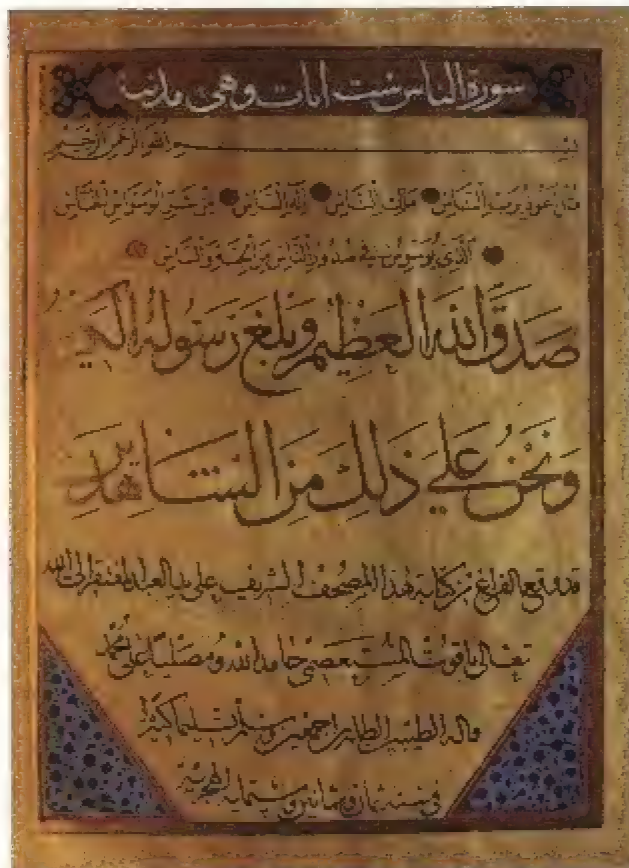 سورة الناس ست ايات وهى مدنية
بسم الله الرحمن الرحيم
قل اعوذ برب الناس ملك الناس اله الناس من شر الوسواس الخناس
الذي يوسوس في صدور الناس من الجنة والناس
صدق الله العظيم وبلغ رسوله الكريم
ونحن على ذلك من الشاهدين
قد وقع الفراغ من كتابة هذا المصحف الشريف على يد العبد المفتقر الى الله
تعالى ياقوت المستعصمي حامدا لله ومصليا على محمد
واله الطيبين الطاهرين اجمعين وسلم تسليما كثيرا
في سنة ثمان وثمانين وستمايه الهجرية